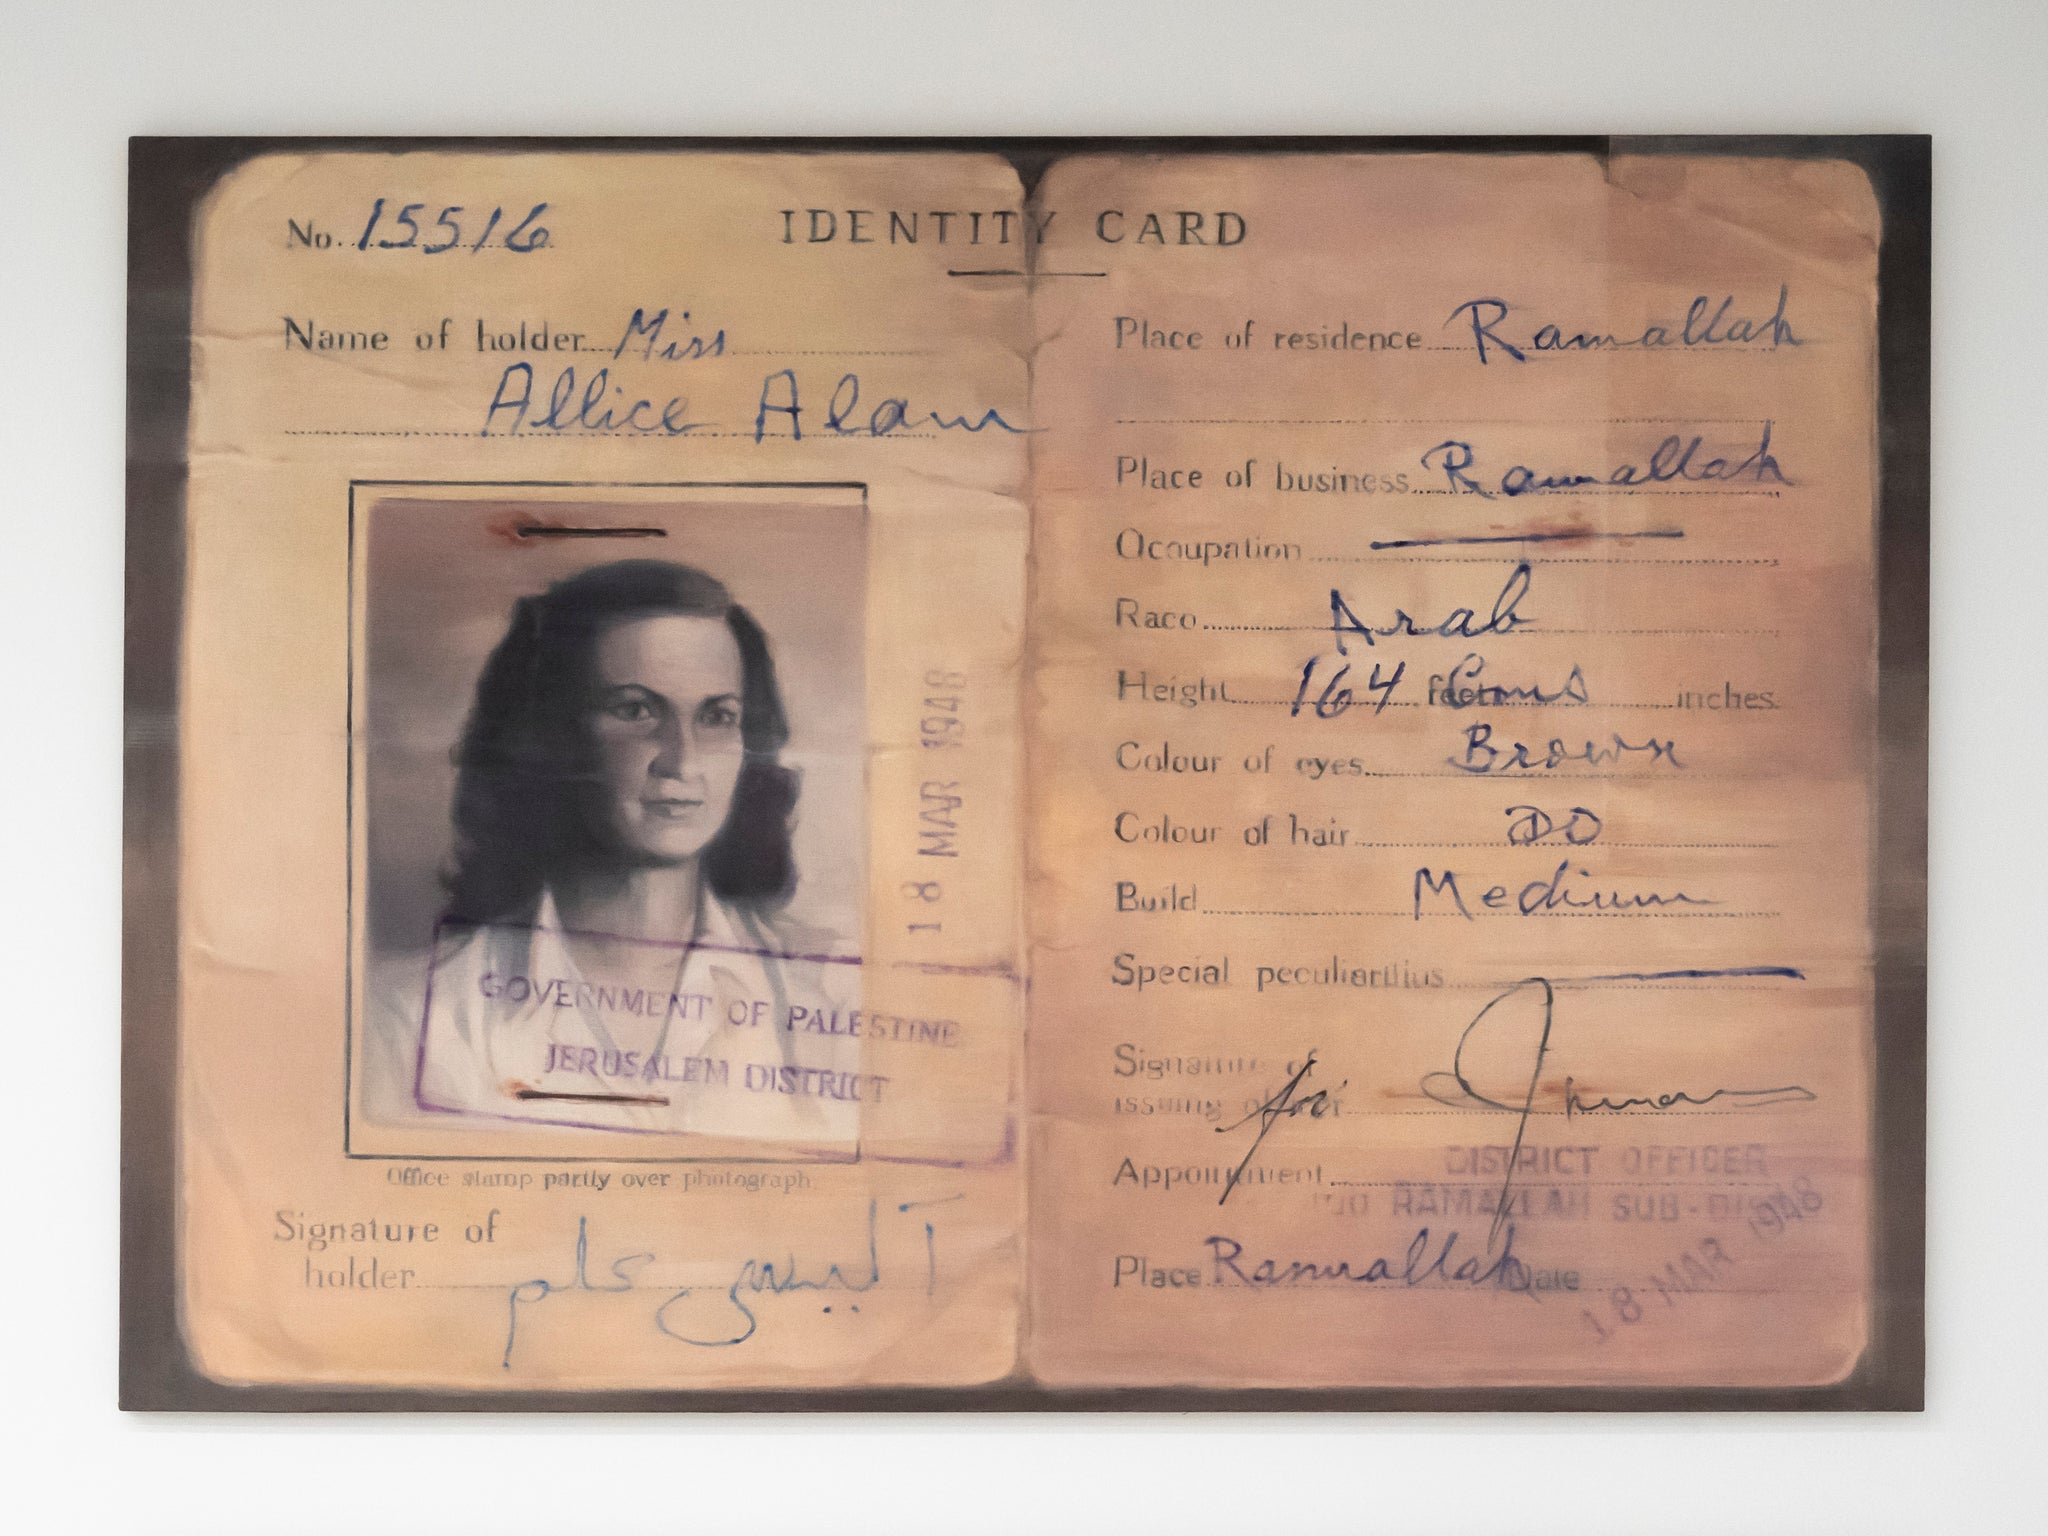 No. 15516
IDENTITY CARD
Name of holder Miss
Allice Alam
18 MAR 1948
GOVERNMENT OF PALESTINE
JERUSALEM DISTRICT
Office stamp partly over photograph
Signature of
holder آليس علم
Place of residence Ramallah
Place of business Ramallah
Ocoupation
Raco Arab
Height 164 feet Cms inches
Colour of eyes Brown
Colour of hair DO
Build Medium
Special
Signature of
issuing for
Appointment
DISTRICT OFFICER
RAMALLAH SUB-
Place Ramallah Date
18 MAR 1948